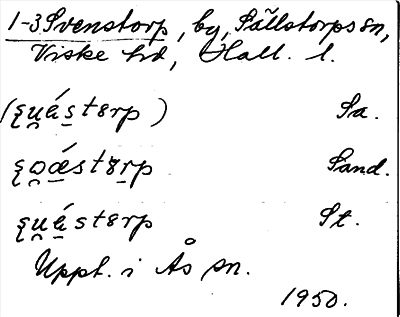 1-3 Svenstorp, by, Sällstorps sn,
Viske hd, Hall. l.
(su̯ástɜrp) Sa.
so̯ástɜrp Sand.
su̯ástɜrp St.
Uppt. i Ås sn.
1950.